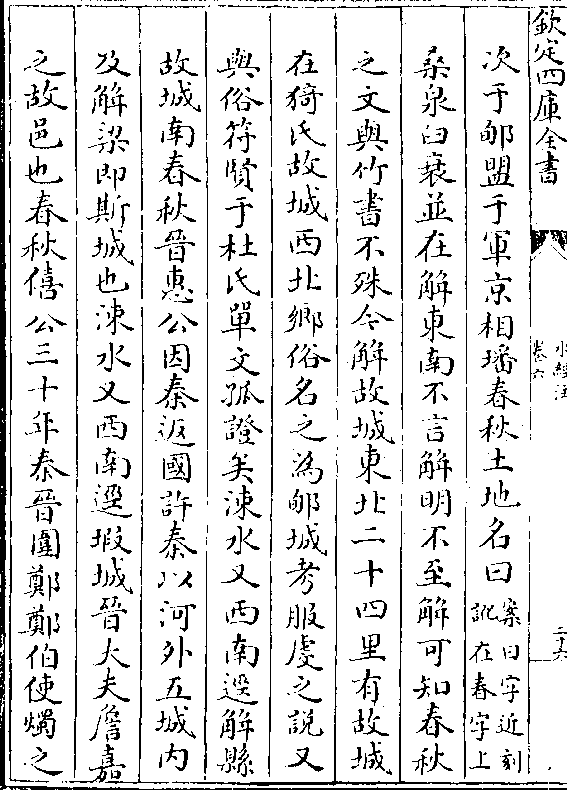 欽定四庫全書
水經注
卷六
二十六
次于郇盟于軍京相璠春秋土地名曰案曰字近刻訛在春字上
桑泉臼衰並在解東南不言解明不至解可知春秋
之文與竹書不殊今解故城東北二十四里有故城
在猗氏故城西北鄉俗名之為郇城考服虔之說又
與俗符賢于杜氏單文孤證矣涑水又西南逕解縣
故城南春秋晉惠公因秦返國許秦以河外五城内
及解梁即斯城也涑水又西南逕瑕城晉大夫詹嘉
之故邑也春秋僖公三十年秦晉圍鄭鄭伯使燭之